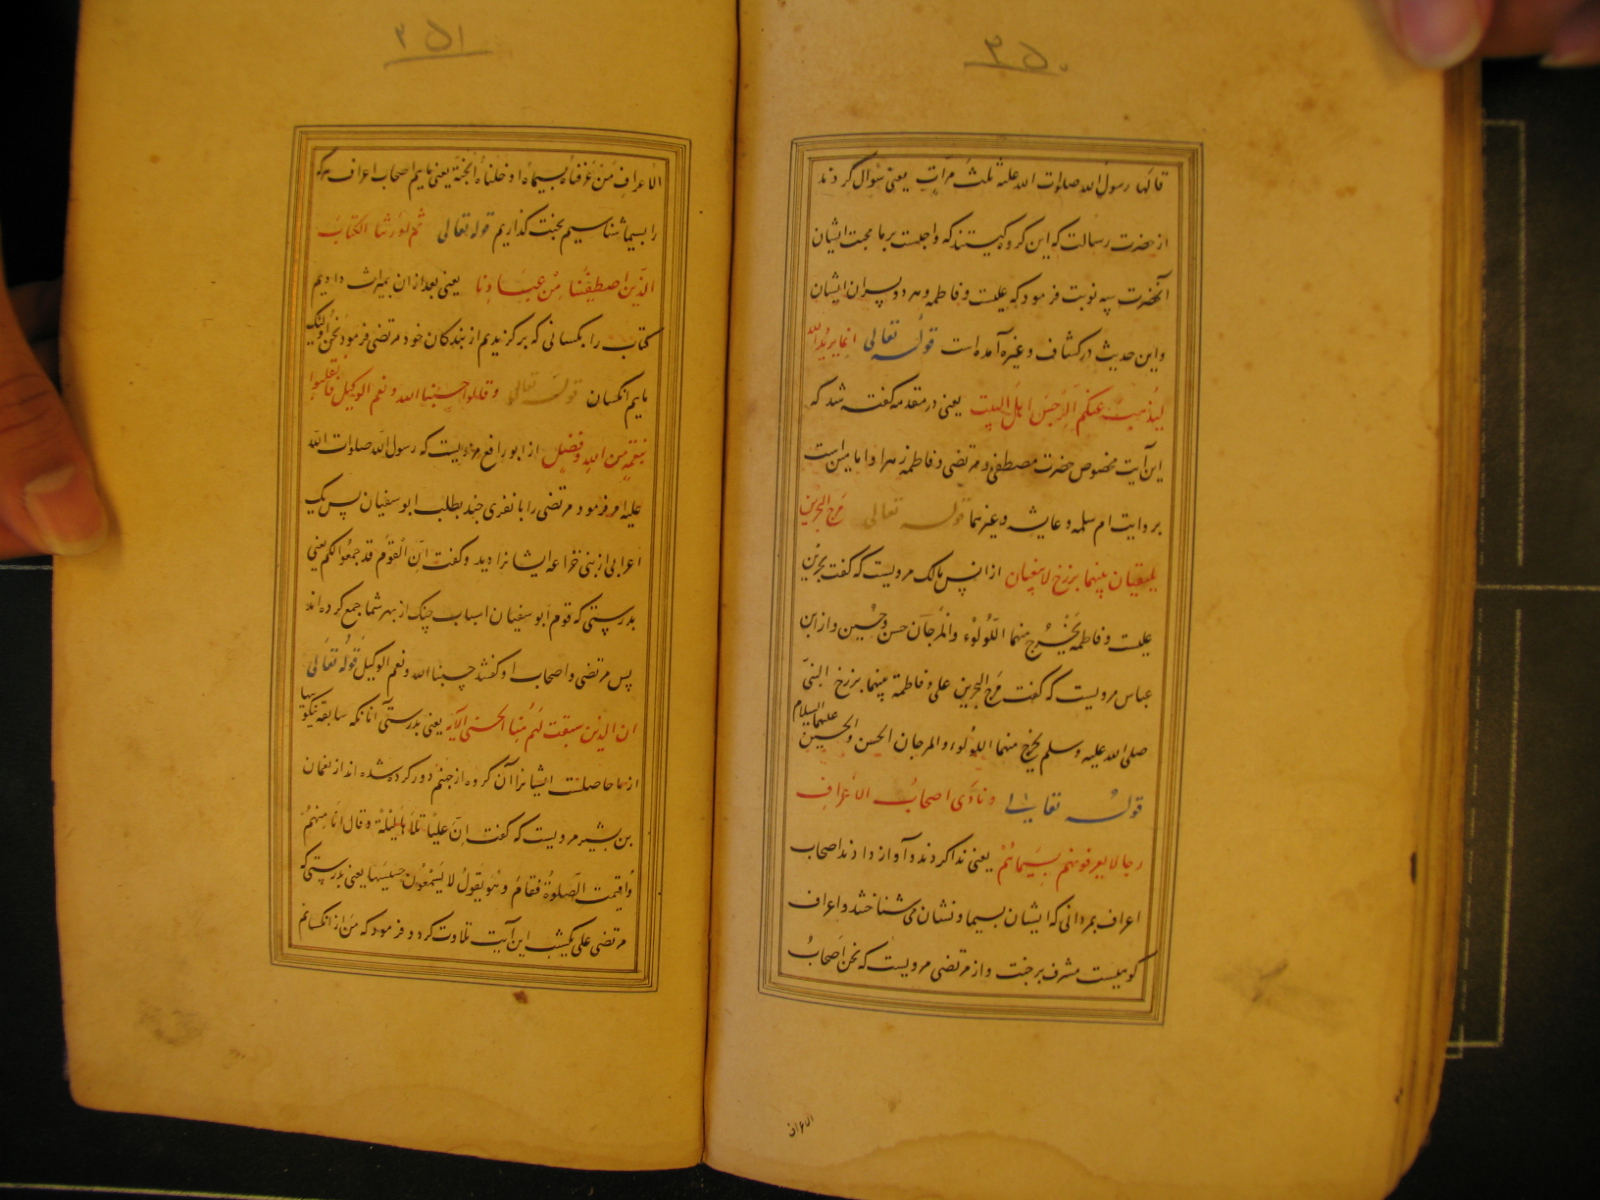 ۳۵۰
قالها رسول الله صلوات الله علیه ثلث مرّات یعنی سؤال کردند
از حضرت رسالت که این کروه کیستند که واجبست بر ما محبت ایشان
آنحضرت سه نوبت فرمود که علیست و فاطمه و هر دو پسران ایشان
واین حدیث در کشاف و غیره آمده است قوله تعالی انما یرید الله
لیذهب عنکم الرجس اهل البیت یعنی در مقدمه گفته شد که
این آیت مخصوص حضرت مصطفی و مرتضی و فاطمه زهرا و امامینست
بروایت ام سلمه و عایشه و غیرهما قوله تعالی مرج البحرین
یلتقیان بینهما برزخ لا یبغیان از انس مالک مرویست که گفت بحرین
علیست و فاطمه یخرج منهما اللؤلؤ والمرجان حسن وحسین و از ابن
عباس مرویست که گفت مرج البحرین علی و فاطمة بینهما برزخ النبی
صلی الله علیه وسلم یخرج منهما اللؤلؤ والمرجان الحسن والحسین علیهما السلام
قوله تعالی ونادی اصحاب الاعراف
رجالا یعرفونهم بسیماهم یعنی ندا کردند و آواز دادند اصحاب
اعراف بمردانی که ایشان بسیما و نشان می شناختند و اعراف
کوهیست مشرف بر جنت و از مرتضی مرویست که نحن اصحاب
الاعراف
۳۵۱
الاعراف من عرفناه بسیماه ادخلناه الجنة یعنی ماییم اصحاب اعراف هرکه
را بسیما شناسیم بجنت گذاریم قوله تعالی ثم اورثنا الکتاب
الذین اصطفینا من عبادنا یعنی بعد از ان بمیراث دادیم
کتاب را بکسانی که برگزیدیم از بندکان خود مرتضی فرمود نحن اولئک
ماییم انکسان قوله تعالی وقالوا حسبنا الله ونعم الوکیل فانقلبوا
بنعمة من الله وفضل از ابو رافع مرویست که رسول الله صلوات الله
علیه امر فرمود مرتضی را با نفری چند بطلب ابو سفیان پس یک
اعرابی از بنی خزاعه ایشانرا دید وگفت انّ القوم قد جمعوا لکم یعنی
بدرستی که قوم ابو سفیان اسباب جنک از بهر شما جمع کرده اند
پس مرتضی و اصحاب او گفتند حسبنا الله ونعم الوکیل قوله تعالی
ان الذین سبقت لهم منا الحسنی الآیه یعنی بدرستی آنانکه سابقه نیکوئیها
از ما حاصلست ایشانرا آن کروه از جهنم دور کرده شده اند از نعمان
بن بشیر مرویست که گفت انّ علیّا تلاها لیلة وقال انا منهم
واقیمت الصلوة فقام وهو یقول لا یسمعون حسیسها یعنی بدرستی که
مرتضی علی یکشب این آیت تلاوت کرد و فرمود که من از انکسانم